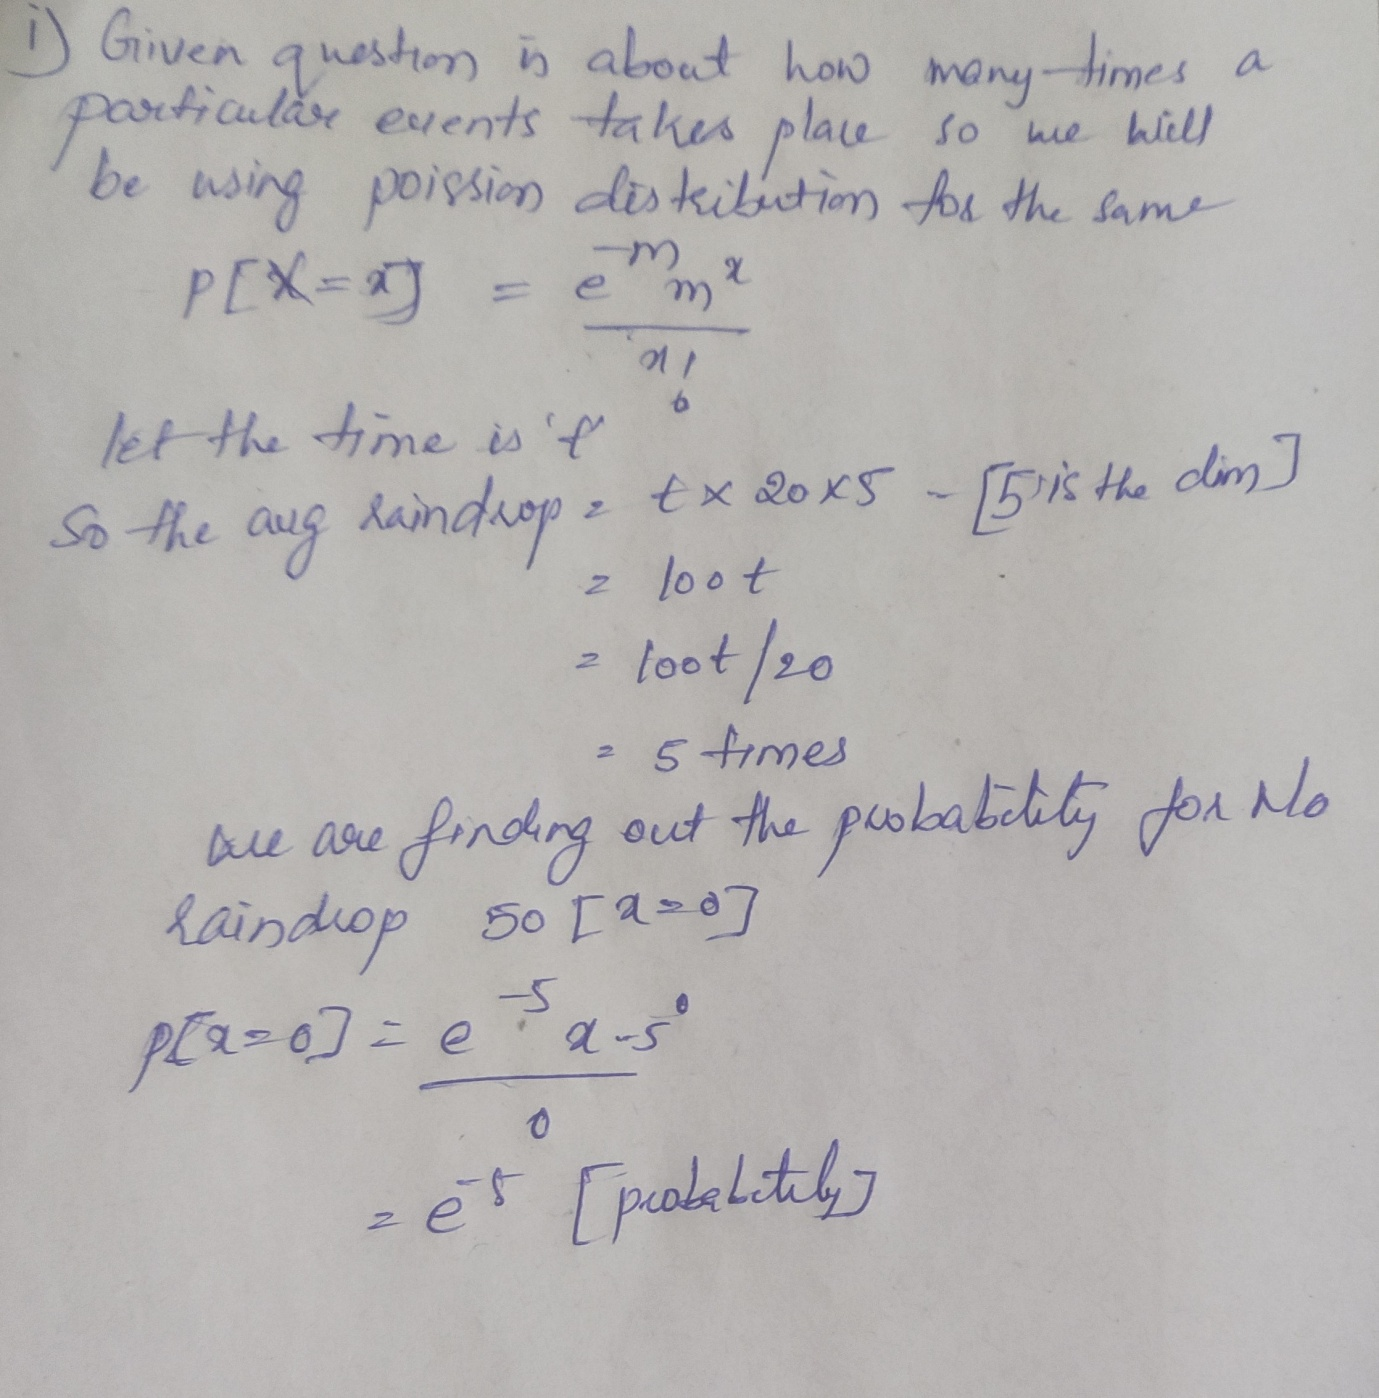 i) Given question is about how many times a
particular events takes place so we will
be using poission distribution for the same
P[X=x] = e^-m m^x
x!
let the time is 't'
So the avg raindrop = t x 20 x 5 - [5 is the dim]
= 100t
= 100t/20
= 5 times
we are finding out the probability for No
raindrop so [x=0]
p[x=0] = e^-5 x -5^0
0
= e^-5 [probability]